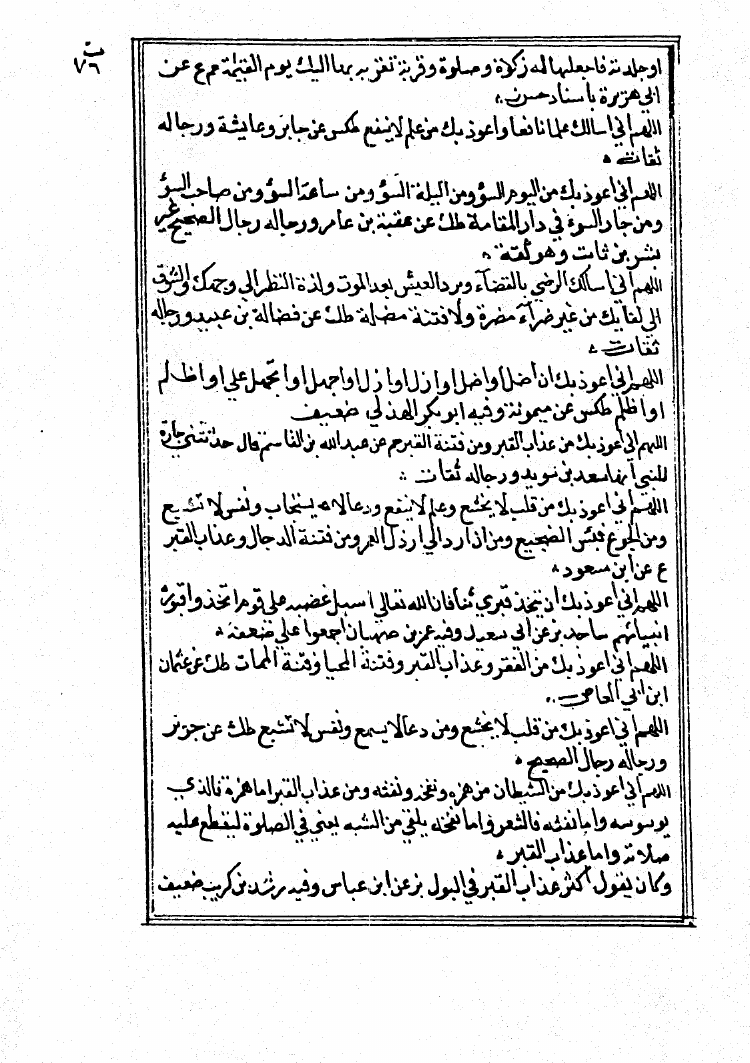 ت
٧٦
او جلدته فاجعلها له زكاة وصلوة وقربة تقربه بها اليك يوم القيمة عم ع عن
ابي هريرة باسناد حسن
اللهم اني اسالك علما نافعا واعوذ بك من علم لا ينفع طكس عن جابر وعايشة ورجاله
ثقات
اللهم اني اعوذ بك من اليوم السؤ ومن ليلة السؤ ومن ساعة السؤ ومن صاحب السؤ
ومن جار السوء في دار المقامة طك عن عقبة بن عامر ورجاله رجال الصحيح غير
بشر بن ثابت وهو ثقة
اللهم اني اسالك الرضي بالقضآء وبرد العيش بعد الموت ولذة النظر الي وجهك والشوق
الي لقايك من غير ضرآء مضرة ولا فتنة مضلة طك عن فضالة بن عبيد ورجاله
ثقات
اللهم اني اعوذ بك ان اضل او اضل او ازل او ازل او اجهل او يجهل علي او اظلم
او اظلم طكس عن ميمونة وفيه ابو بكر الهذلي ضعيف
اللهم اني اعوذ بك من عذاب القبر ومن فتنة القبر حم عن عبد الله بن القاسم قال حدثتني جارة
للنبي انها سعد بن سويد ورجاله ثقات
اللهم اني اعوذ بك من قلب لا يخشع وعلم لا ينفع ودعا لا يستجاب ونفس لا تشبع
ومن الجوع فبئس الضجيع ومن ان ارد الي ارذل العمر ومن فتنة الدجال وعذاب القبر
ع عن ابن مسعود
اللهم اني اعوذ بك ان يتخذ قبري ثنا فان الله تعالي اسبل غضبه علي قوم اتخذوا قبور
انبيائهم ساجد بز عن ابي سعيد وفيه عمر بن صهبان اجمعوا علي ضعفه
اللهم اني اعوذ بك من الفقر وعذاب القبر وفتنة المحيا وفتنة الممات طك عن عثمان
ابن ابي العاص
اللهم اني اعوذ بك من قلب لا يخشع ومن دعا لا يسمع ونفس لا تشبع طك عن جرير
ورجاله رجال الصحيح
اللهم اني اعوذ بك من الشيطان من همزه ونفخه ونفثه ومن عذاب القبر اما همزه فالذي
يوسوسه واما نفثه فالشعر واما نفخه يلقي من الشبه يعني في الصلوة ليقطع عليه
صلاته واما عذاب القبر
وكان يقول اكثر عذاب القبر في البول بز عن ابن عباس وفيه رشد بن كريب ضعيف